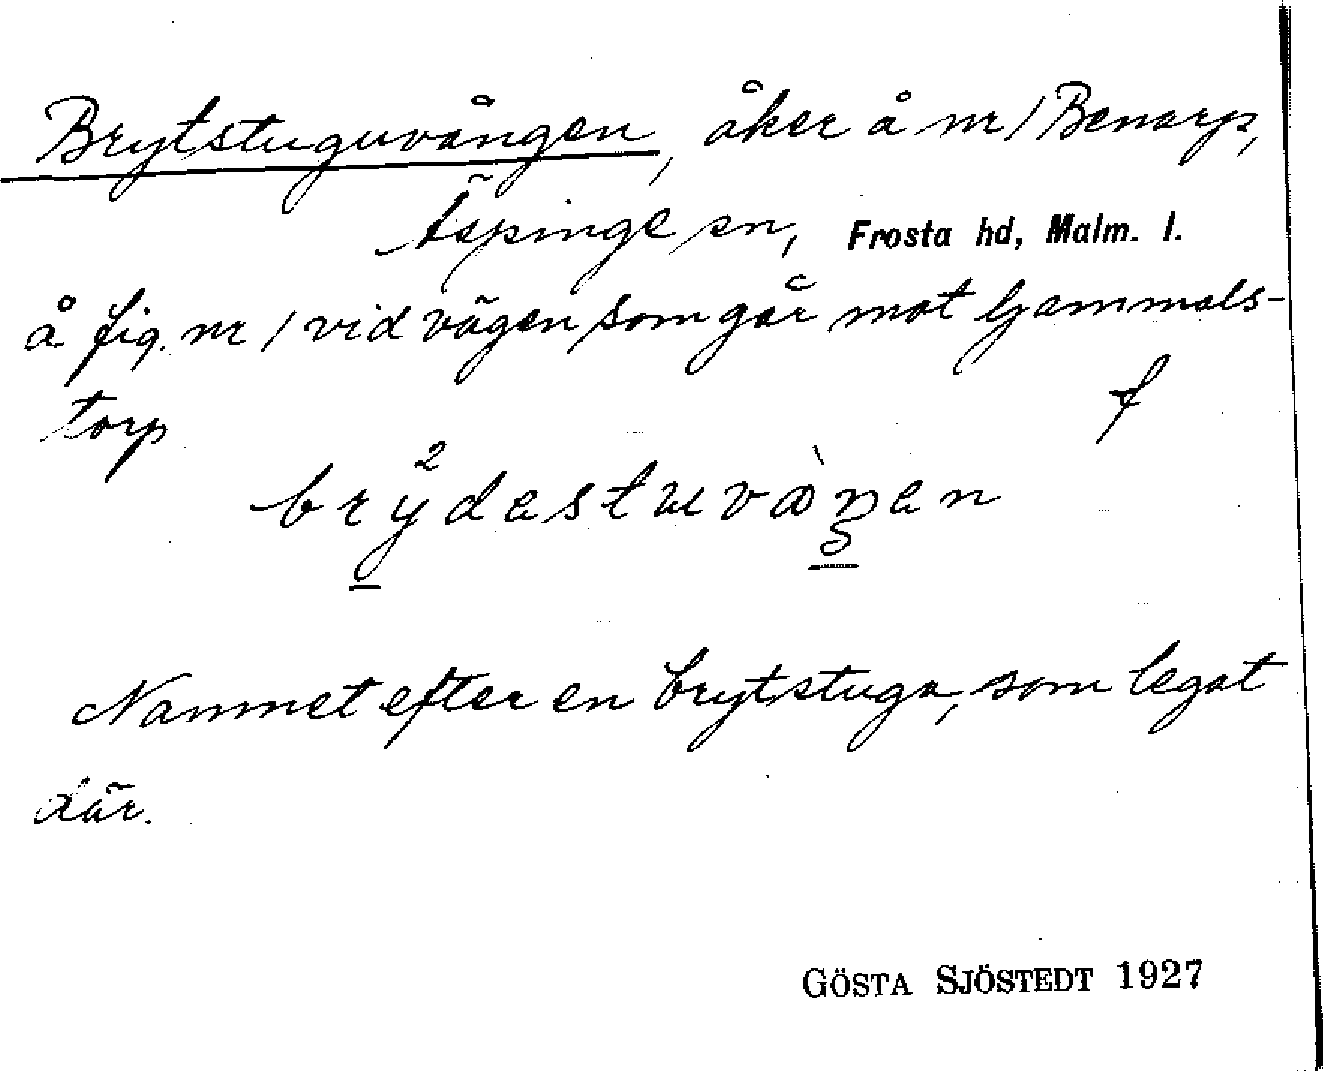 Brytstuguvången, åker å nr 1 Benarp,
Äspinge sn, Frosta hd, Malm. l.
å fig. nr 1 vid vägen som går mot Gammals-
torp
f
Namnet efter en brytstuga, som legat
där.
GÖSTA SJÖSTEDT 1927